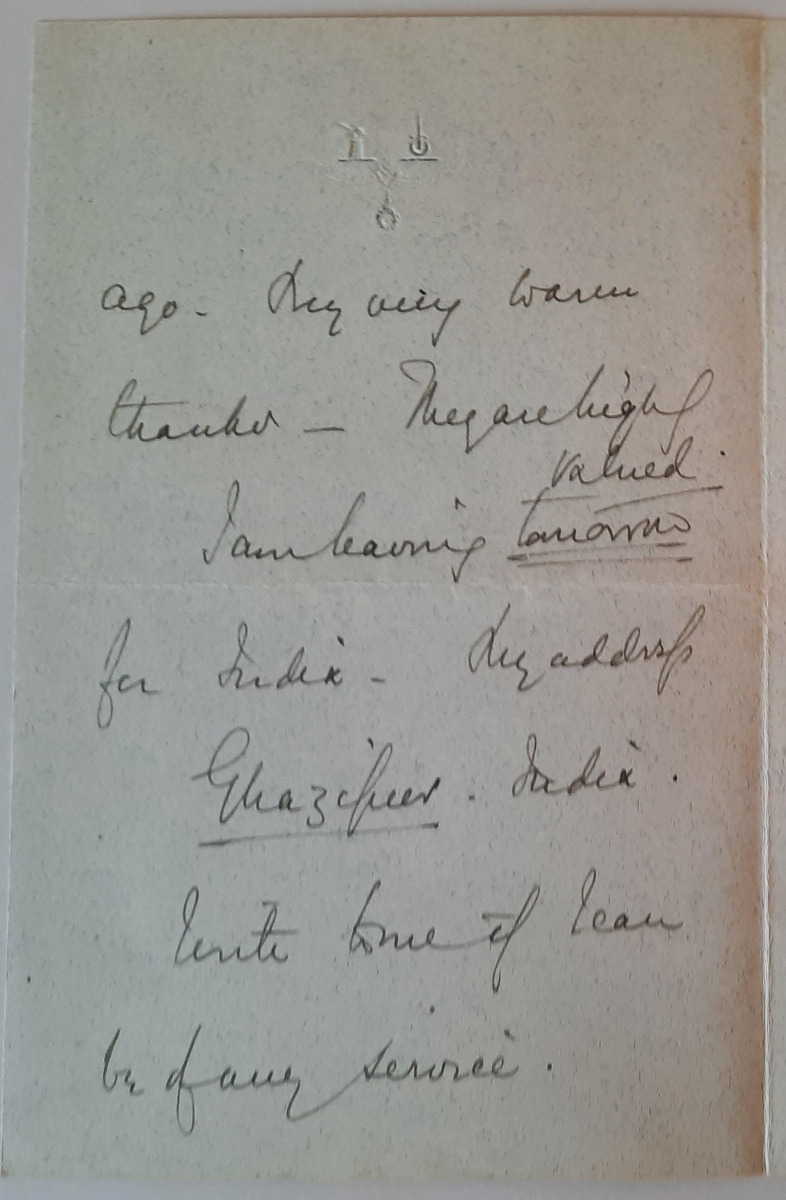 ago - My very warm
thanks - They are highly
valued.
I am leaving tomorrow
for India - My address
Ghazipur. India.
Write to me if I can
be of any service.